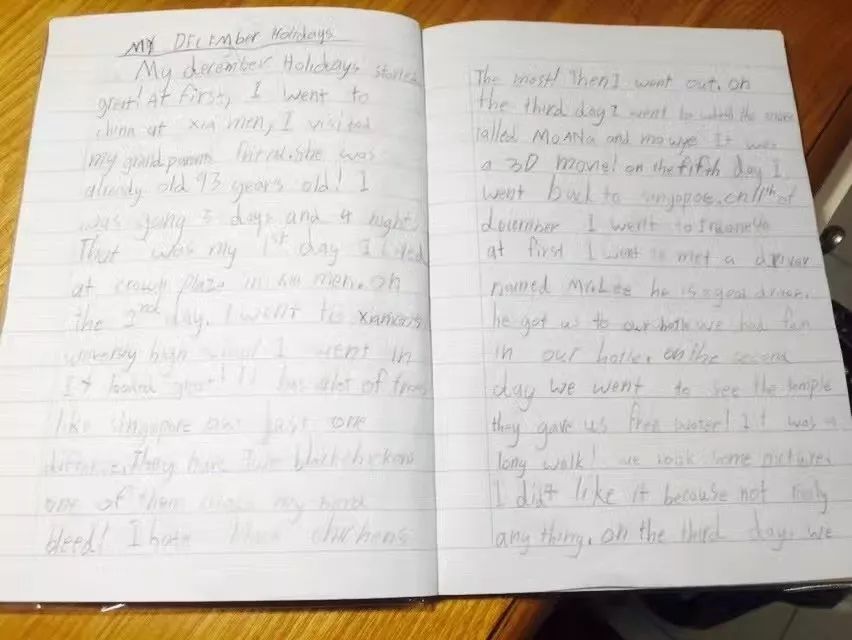 MY DECEMber Holidays
My december Holidays started
great! At first, I went to
china at xia men, I visited
my grand parents friend. she was
already old 93 years old! I
was going 3 days and 4 night.
That was my 1st day I lived
at crown plaza in xia men. on
the 2nd day. I went to xiamens
high I went in
It looked great! It has alot of trees
like singapore but Just one
They have black chickens
one of them my hand
bleed! I hate black chickens
The most! Then I went out. on
the third day I went to watch the movie
called MOANA and It was
a 3D movie! on the fifth day I
went back to on 11th of
december I went to
at first I went to met a driver
named Mr.Lee he is a good driver.
he got us to our we had fun
in our on the second
day we went to see the temple
they gave us free water! It was a
long walk! we took some pictures
I did't like it because not
any thing. on the third day. we